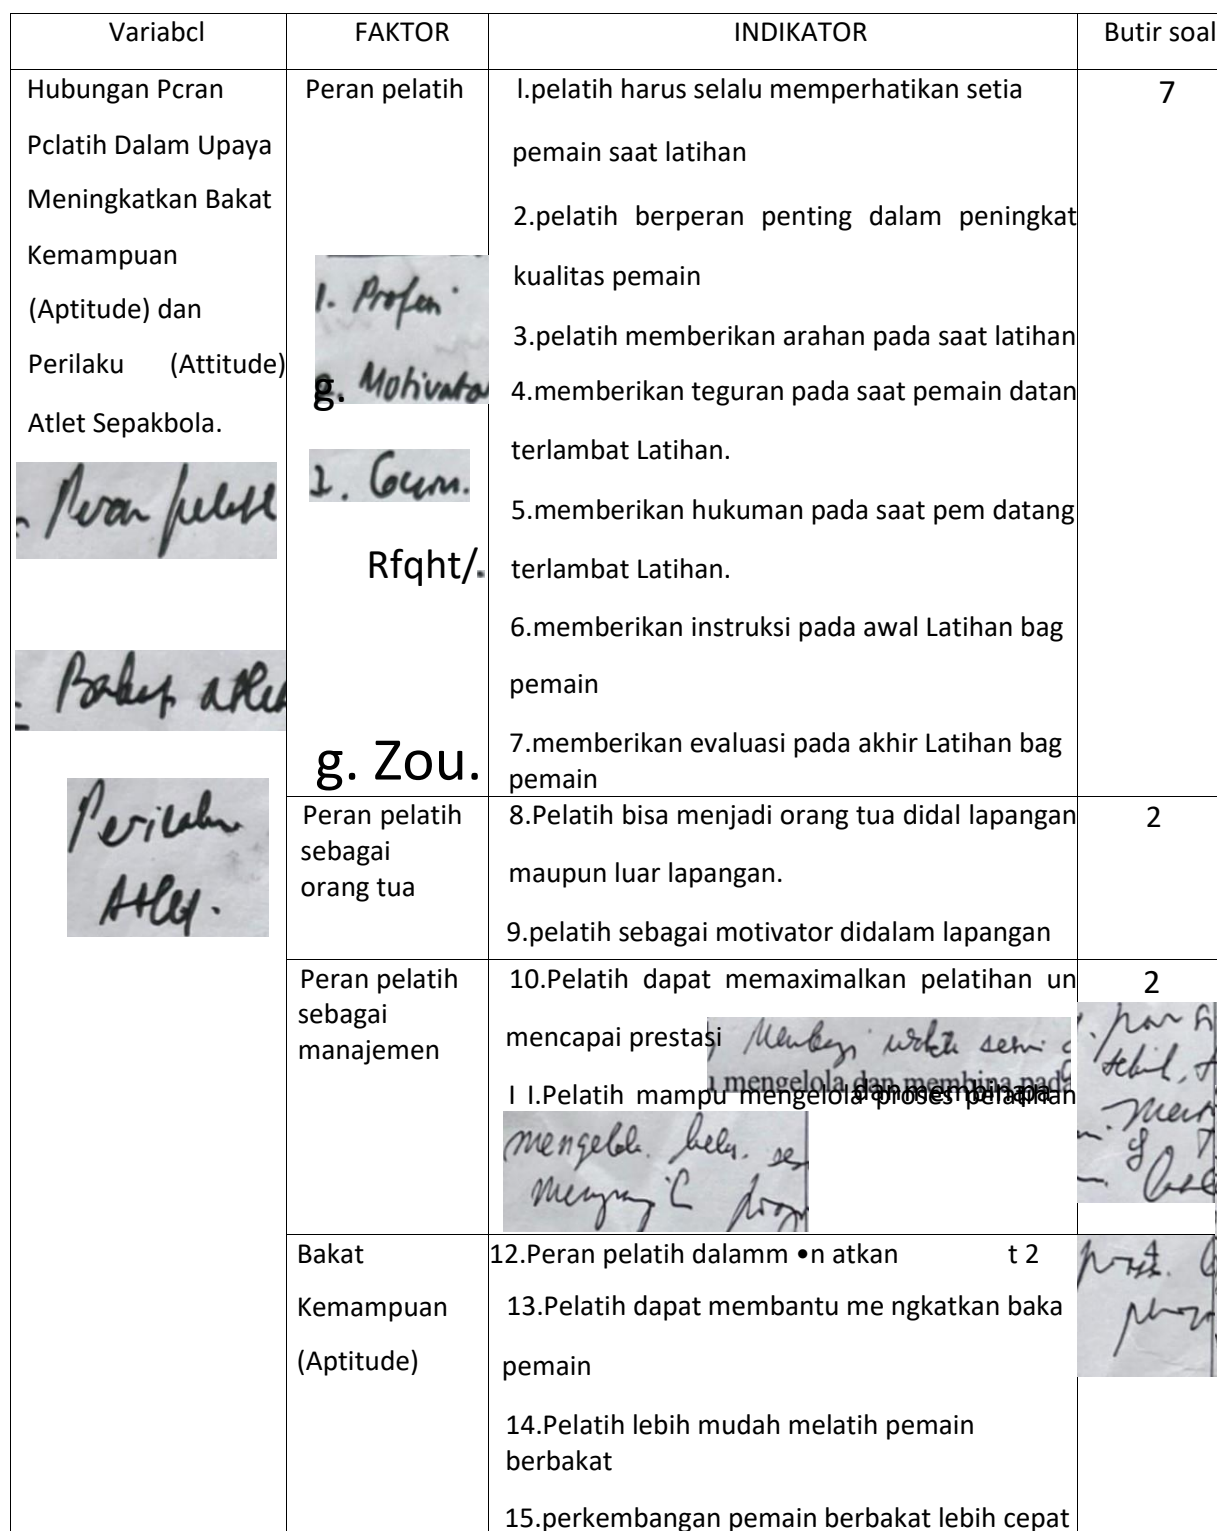 Variabcl FAKTOR INDIKATOR Butir soal
Hubungan Pcran
Pclatih Dalam Upaya
Meningkatkan Bakat
Kemampuan
(Aptitude) dan
Perilaku (Attitude)
Atlet Sepakbola.
Peran pelatih
Bakat atlet
Perilaku
Atlet.
Peran pelatih
1. Profesi
g. Motivato
2. Gurn.
Rfqht/.
g. Zou.
l.pelatih harus selalu memperhatikan setia
pemain saat latihan
2.pelatih berperan penting dalam peningkat
kualitas pemain
3.pelatih memberikan arahan pada saat latihan
4.memberikan teguran pada saat pemain datan
terlambat Latihan.
5.memberikan hukuman pada saat pem datang
terlambat Latihan.
6.memberikan instruksi pada awal Latihan bag
pemain
7.memberikan evaluasi pada akhir Latihan bag
pemain
7
Peran pelatih
sebagai
orang tua
8.Pelatih bisa menjadi orang tua didal lapangan
maupun luar lapangan.
9.pelatih sebagai motivator didalam lapangan
2
Peran pelatih
sebagai
manajemen
10.Pelatih dapat memaximalkan pelatihan un
mencapai prestasi
mengelola dan membina pada
I I.Pelatih mampu mengelola proses pelatihan
mengelola
2
Bakat
Kemampuan
(Aptitude)
12.Peran pelatih dalamm •n atkan t 2
13.Pelatih dapat membantu me ngkatkan baka
pemain
14.Pelatih lebih mudah melatih pemain
berbakat
15.perkembangan pemain berbakat lebih cepat
4